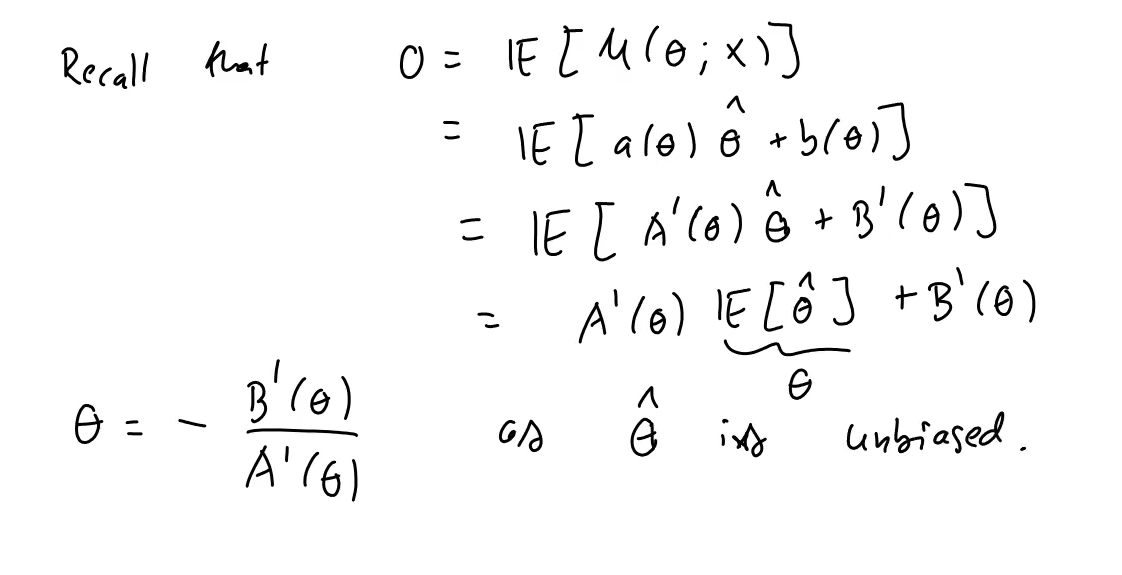 Recall that 0 = 𝔼[U(θ; x)]
= 𝔼[a(θ) θ̂ + b(θ)]
= 𝔼[A'(θ) θ̂ + B'(θ)]
= A'(θ) 𝔼[θ̂] + B'(θ)
θ
θ = - B'(θ) / A'(θ) as θ̂ is unbiased.